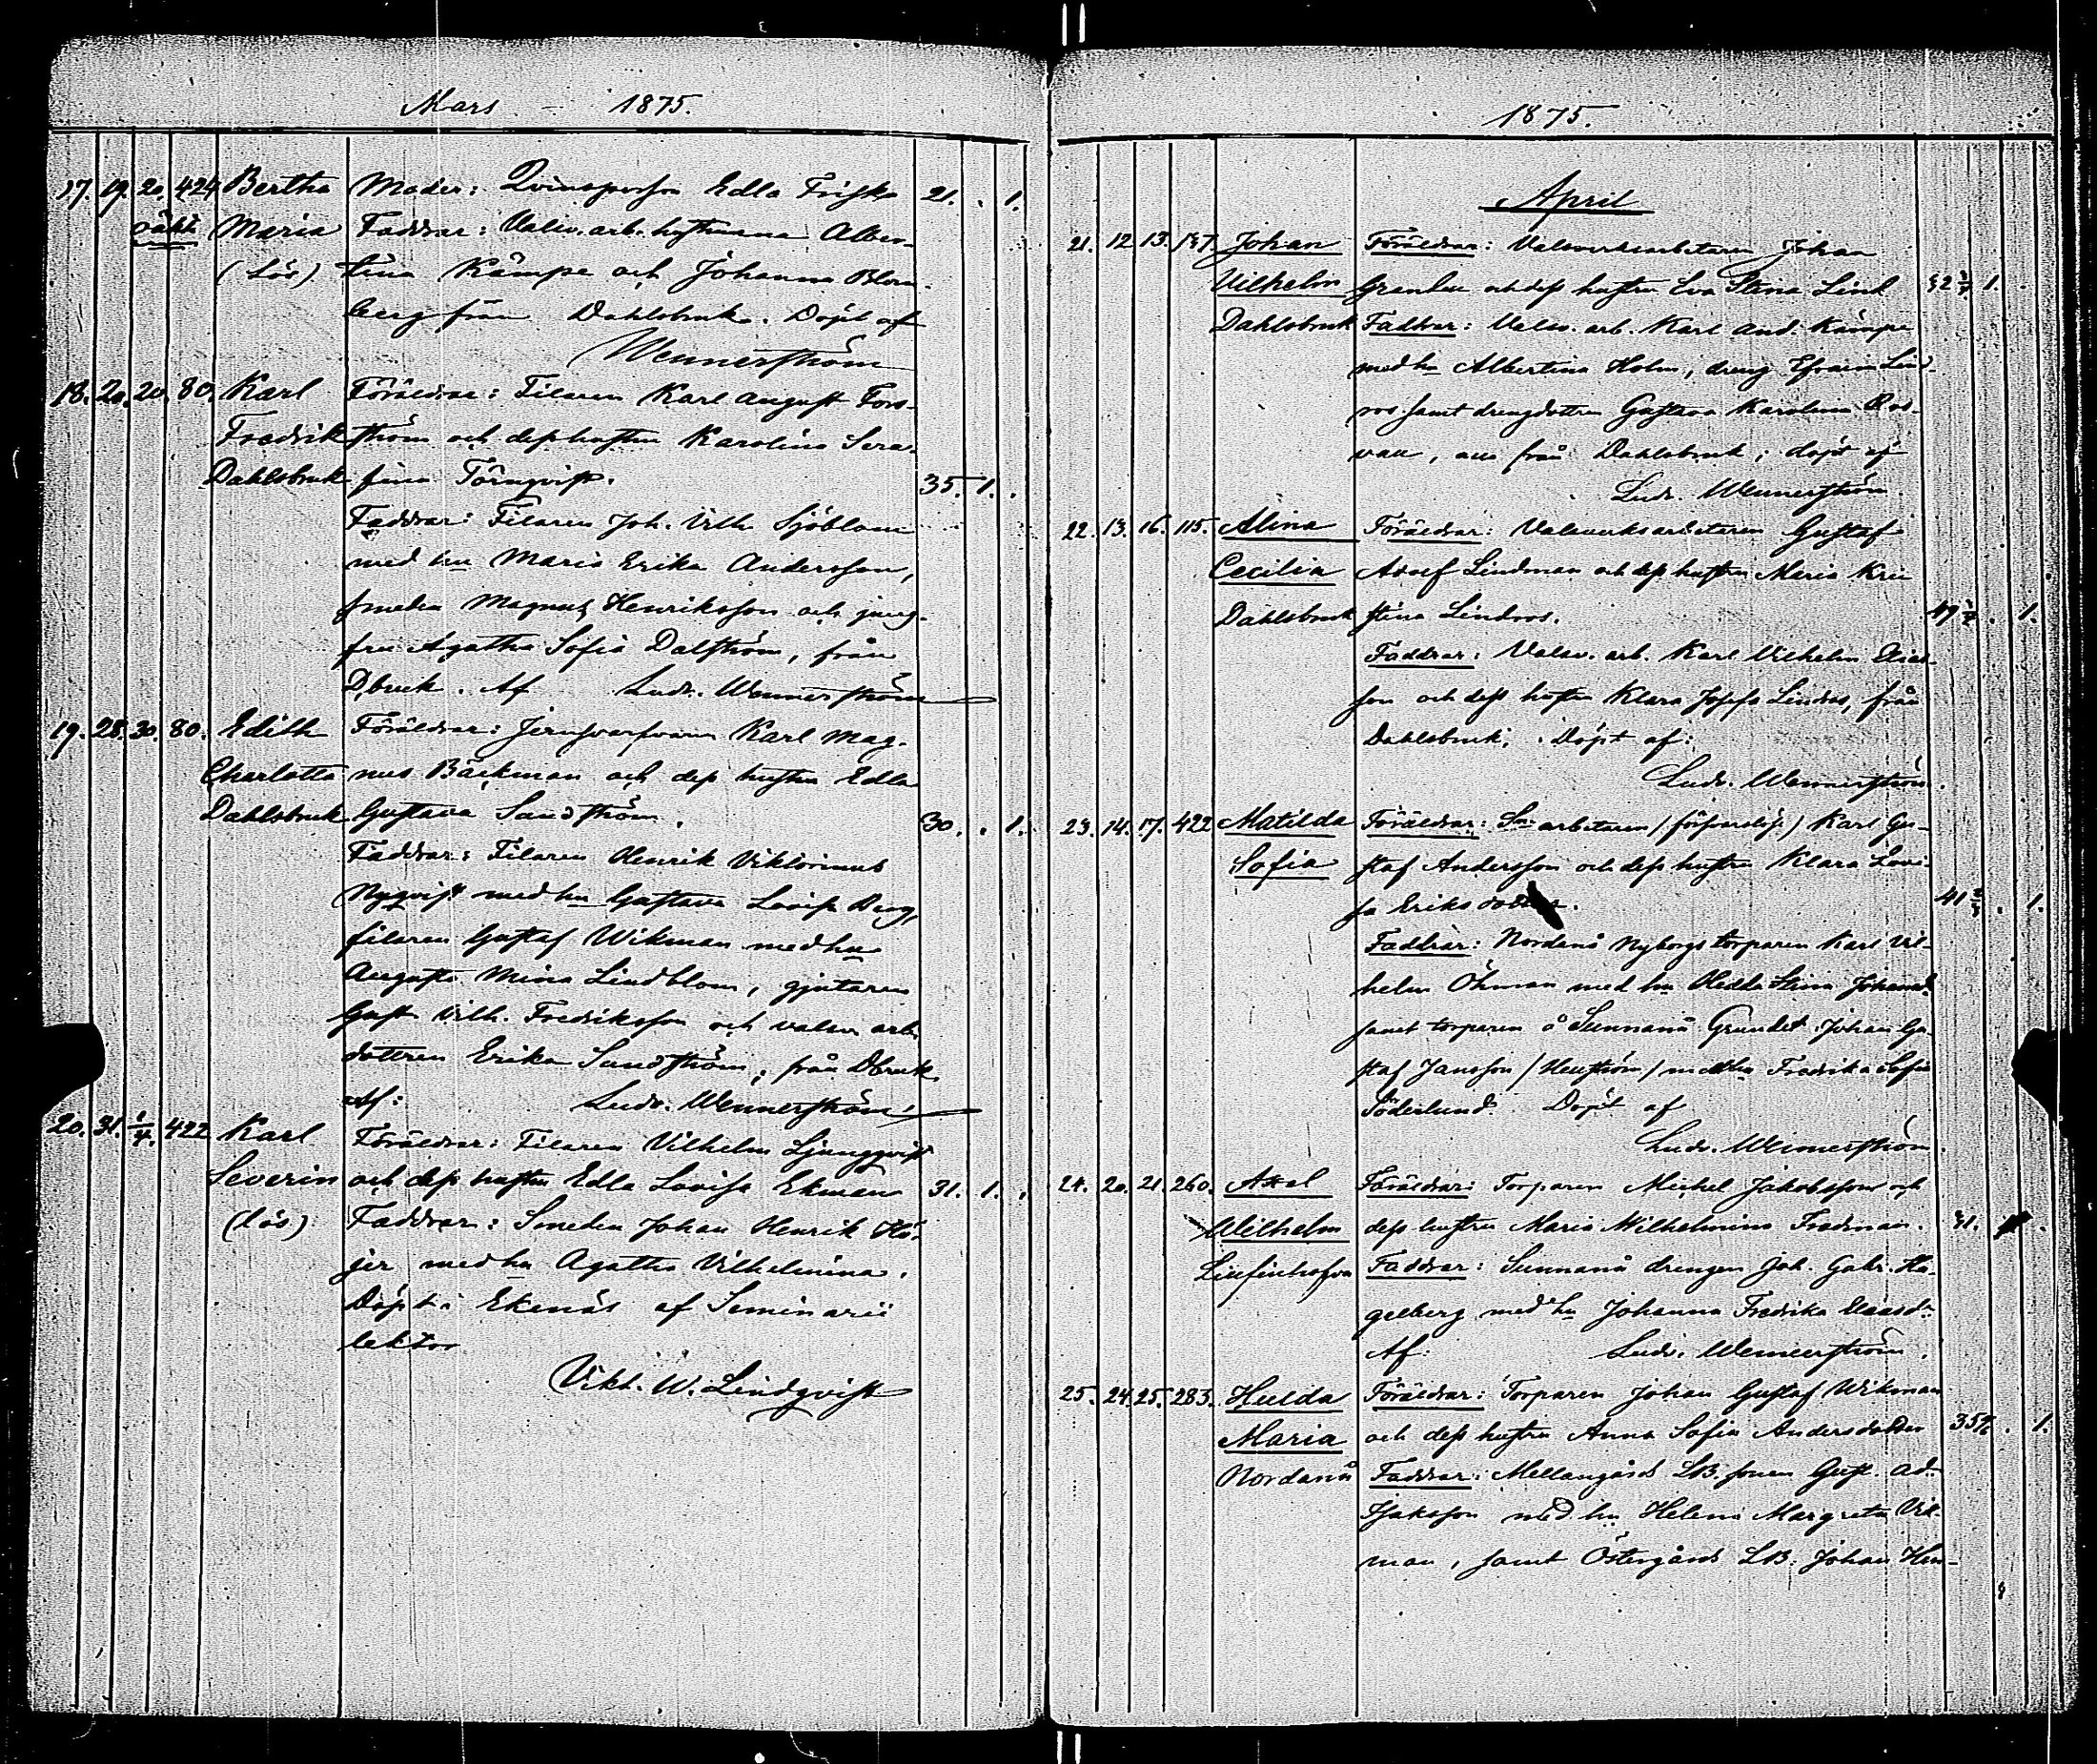 Mars - 1875.
17. 19. 20. 424 Bertha Moder: Qvinsperson Edla Frisk 21. . 1.
oäkta Maria Faddrar: Valsv. arb. hustruana Alber-
(Lös). tina Kämpe och Johanna Blom-
berg från Dahlsbruk. Döpt af
Wennerström
18. 20. 20. 80. Karl Föräldrar: Filaren Karl August Fors-
Fredrik ström och dess hustru Karolina Sera-
Dahlsbruk fina Törnqvist. 35. 1. .
Faddrar: Filaren Joh. Vilh. Sjöblom
med hu Maria Erika Andersson,
smeden Magnus Henriksson och jung-
fru Agatha Sofia Dalström, från
D,bruk. Af Ludv. Wennerström
19. 28. 30. 80. Edith Föräldrar: Jernsvarfvaren Karl Mag-
Charlotta nus Bäckman och dess hustru Edla
Dahlsbruk Gustava Sandström. 30. . 1.
Faddrar: Filaren Henrik Viktorinus
Nyqvist med hu Gustava Lovisa Berg,
filaren Gustaf Wikman med hu
Augusta Mina Lindblom, gjutaren
Gust. Vilh. Fredriksson och valsv. arb.
dottren Erika Sundström; från Dbruk.
Af: Ludv. Wennerström
20. 31. 1/4. 422 Karl Föräldrar: Filaren Vilhelm Ljungqvist
Severin och dess hustru Edla Lovisa Ekman 31. 1. .
(lös) Faddrar: Smeden Johan Henrik Hö-
jer med hu Agatha Vilhelmina.
Döpt i Ekenäs af Seminarii
lektor
Vikt. W. Lindqvist
1875.
April
21. 12. 13. 147 Johan Föräldrar: Valsverksarbetaren Johan
Vilhelm Grenlun och dess hustru Eva Stina Lind 1.
Dahlsbruk Faddrar: Valsv. arb. Karl And. Kämpe
med hu Albertina Holm, dreng Efraim Lind-
ros samt drengdottren Gustava Karolina Ros-
vall, alla från Dahlsbruk; döpt af
Ludv. Wennerström.
22. 13. 16. 115. Alina Föräldrar: Valsverksarbetaren Gustaf
Cecilia Adolf Lindman och dess hustru Maria Kri-
Dahlsbruk stina Lindros. . 1.
Faddrar: Valsv. arb. Karl Vilhelm Elias-
son och dess hustru Klara Josefa Lindros, från
Dahlsbruk; Döpt af:
Ludv. Wennerström.
23. 14. 17. 422 Matilda Föräldrar: Sm arbetaren (försvarslös) Karl Gu-
Sofia staf Andersson och dess hustru Klara Lovi-
sa Eriksdotter. . 1.
Faddrar: Nordanå Nyborgs torparen Karl Vil-
helm Öhman med hu Hedda Stina Johansd.
samt torparen å Sunnanå Grundet Johan Gu-
staf Jansson / Henström / med hu Fredrika Sofia
Söderlund. Döpt af
Ludv. Wennerström.
24. 20. 21. 260. Axel Föräldrar: Torparen Michel Jakobsson och
Wilhelm dess hustru Maria Wilhelmina Fredman. 31.
Faddrar: Sunnanå drengen Joh. Gabr. Ha-
gelberg med hu Johanna Fredrika Eliasdr
Af: Ludv. Wennerström.
25. 24. 25. 283. Hulda Föräldrar: Torparen Johan Gustaf Wikman
Maria och dess hustru Anna Sofia Andersdotter . 1.
Nordanå Faddrar: Mellangårds LB. sonen Gust. Ad.
Isaksson med hu Helena Margreta Vik-
man, samt Östergårds LB. Johan Hen-